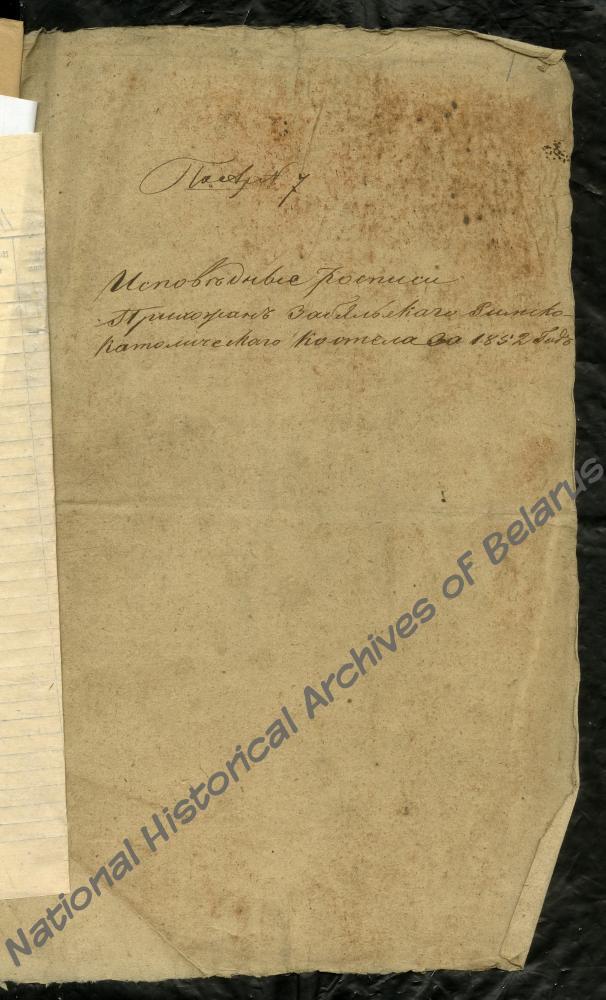 № 7
Исповѣдные росписи
Прихожанъ Забяльскаго Римско
Католическаго Костела за 1852 Годъ
National Historical Archives of Belarus